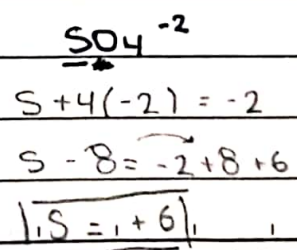 SO4⁻²
S + 4(-2) = -2
S - 8 = -2 + 8 + 6
S = + 6